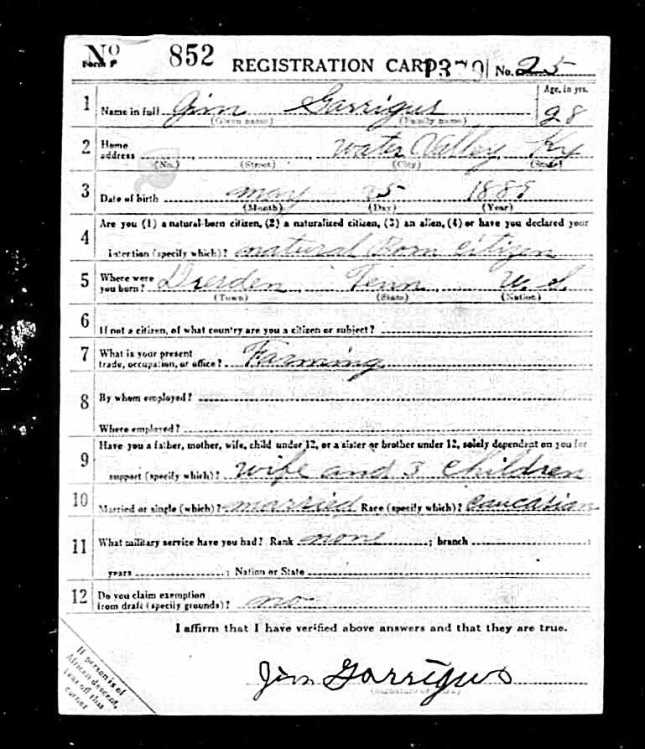 No 852 REGISTRATION CARD No. 25
Form P
1 Name in full Jim Garrigus Age, in yrs. 28
(Given name) (Family name)
2 Home address Water Valley Ky
(No.) (Street) (City) (State)
3 Date of birth May 25 1888
(Month) (Day) (Year)
4 Are you (1) a natural-born citizen, (2) a naturalized citizen, (3) an alien, (4) or have you declared your
intention (specify which)? natural Born citizen
5 Where were you born? Dresden Tenn U.S.
(Town) (State) (Nation)
6 If not a citizen, of what country are you a citizen or subject?
7 What is your present
trade, occupation, or office? Farming
8 By whom employed?
Where employed?
9 Have you a father, mother, wife, child under 12, or a sister or brother under 12, solely dependent on you for
support (specify which)? wife and 3 children
10 Married or single (which)? married Race (specify which)? caucasian
11 What military service have you had? Rank none ; branch ;
years ; Nation or State
12 Do you claim exemption
from draft (specify grounds)? no
I affirm that I have verified above answers and that they are true.
Jim Garrigus
If person is of
African descent,
tear off this
corner